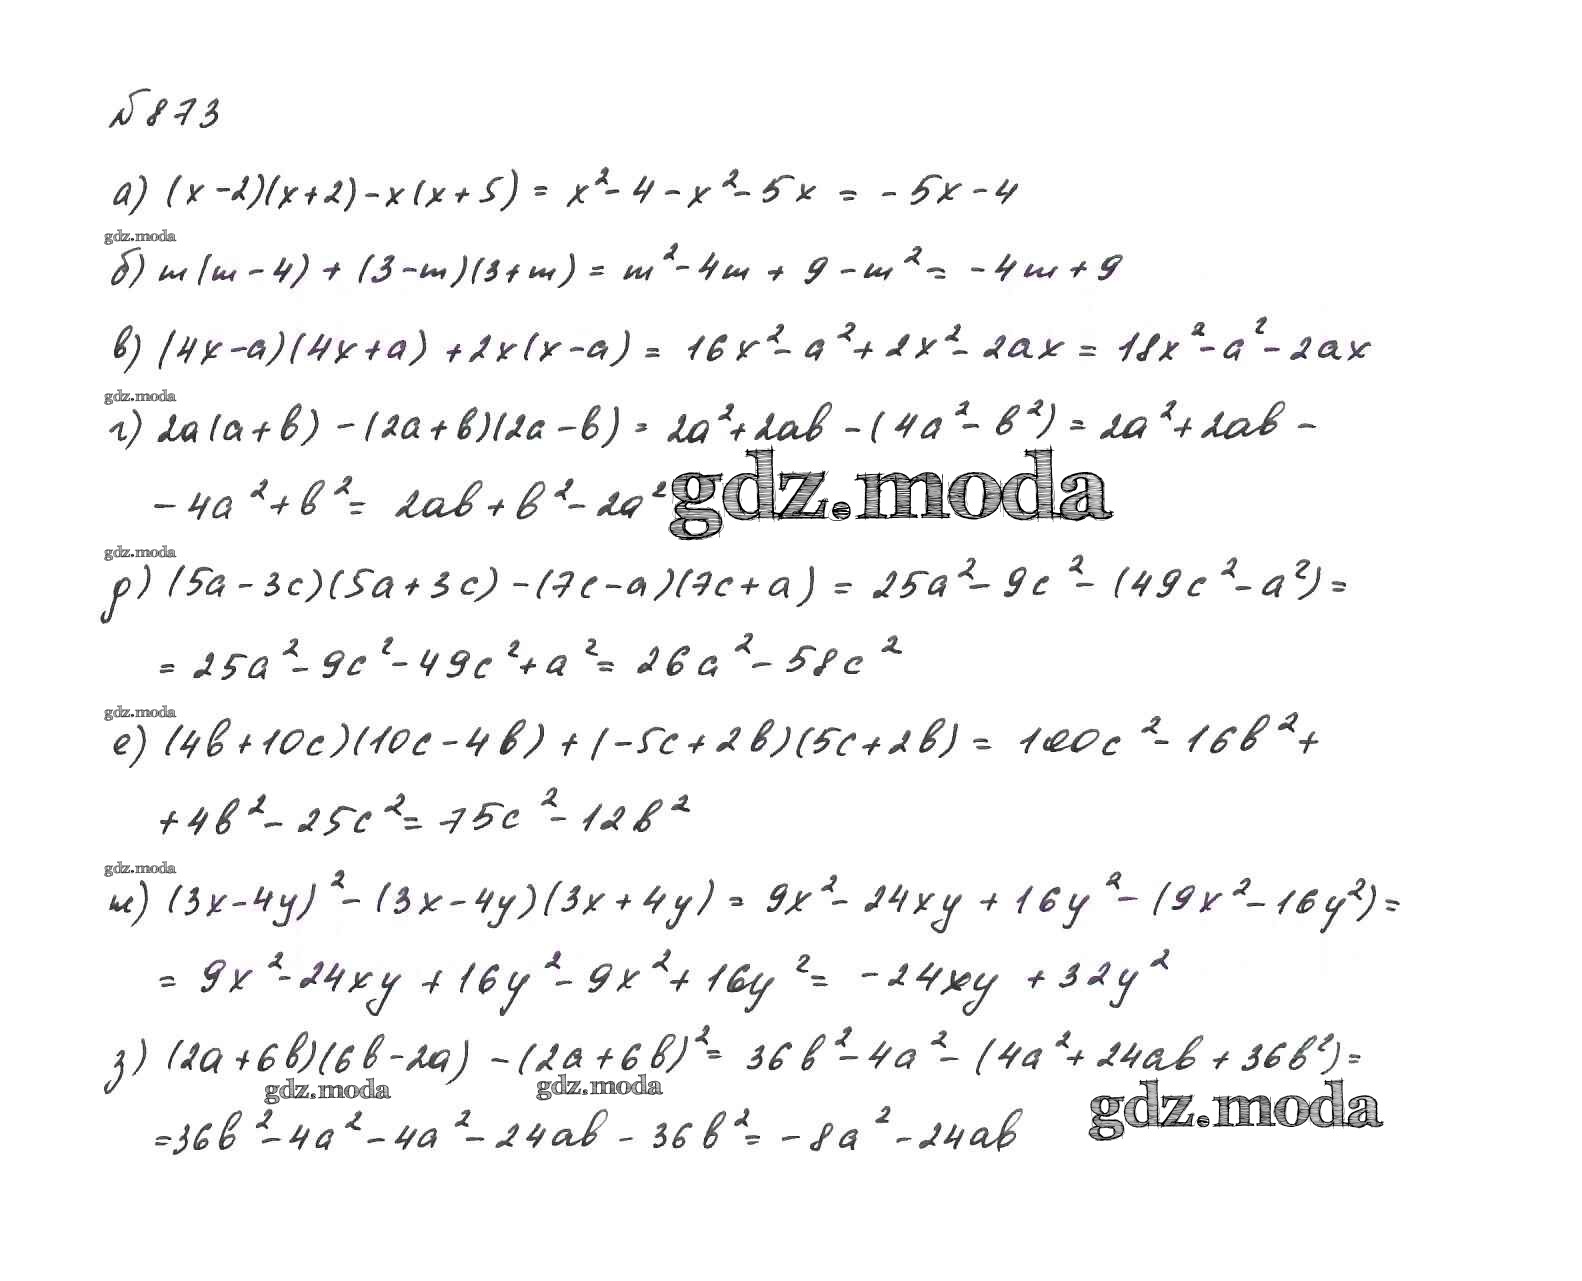 №873
а) (x-2)(x+2)-x(x+5) = x²-4-x²-5x = -5x-4
gdz.moda
б) m(m-4)+(3-m)(3+m) = m²-4m+9-m² = -4m+9
в) (4x-a)(4x+a)+2x(x-a) = 16x²-a²+2x²-2ax = 18x²-a²-2ax
gdz.moda
г) 2a(a+b)-(2a+b)(2a-b) = 2a²+2ab-(4a²-b²) = 2a²+2ab-
-4a²+b² = 2ab+b²-2a²
gdz.moda
gdz.moda
д) (5a-3c)(5a+3c)-(7c-a)(7c+a) = 25a²-9c²-(49c²-a²) =
= 25a²-9c²-49c²+a² = 26a²-58c²
gdz.moda
е) (4b+10c)(10c-4b)+(-5c+2b)(5c+2b) = 100c²-16b²+
+4b²-25c² = 75c²-12b²
gdz.moda
ж) (3x-4y)²-(3x-4y)(3x+4y) = 9x²-24xy+16y²-(9x²-16y²) =
= 9x²-24xy+16y²-9x²+16y² = -24xy+32y²
з) (2a+6b)(6b-2a)-(2a+6b)² = 36b²-4a²-(4a²+24ab+36b²) =
gdz.moda gdz.moda gdz.moda
=36b²-4a²-4a²-24ab-36b² = -8a²-24ab